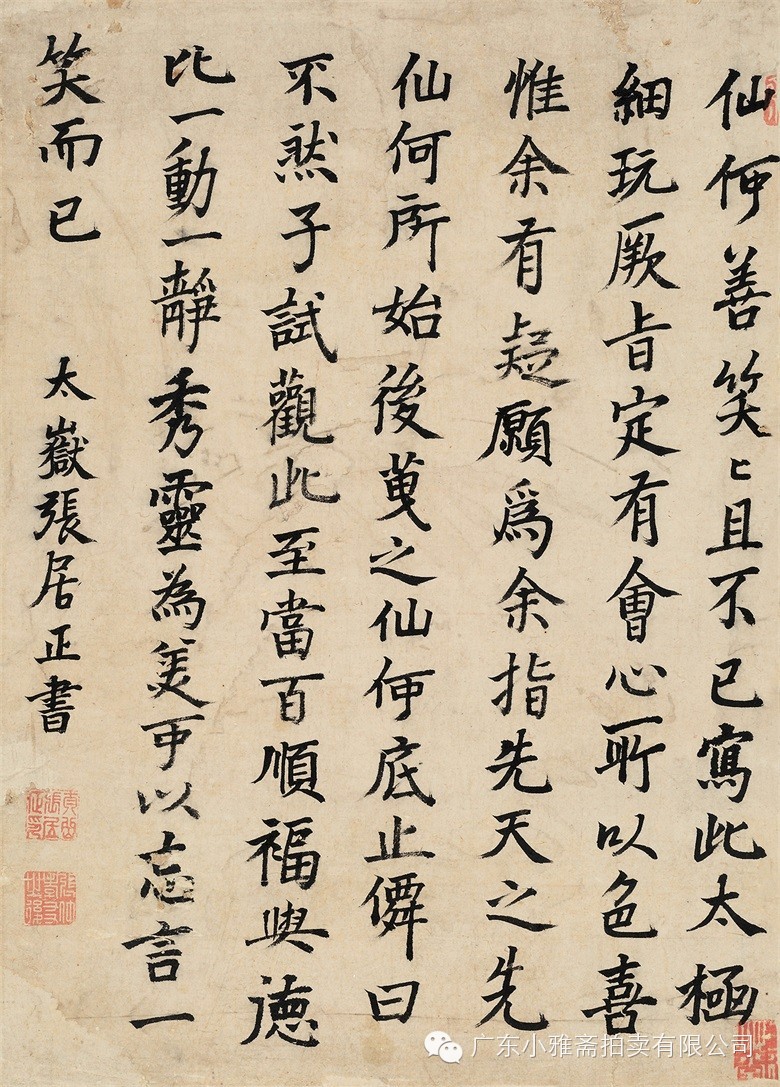 仙何善笑〻且不已寫此太極
細玩厥旨定有會心所以色喜
惟余有疑願為余指先天之先
仙何所始後萬之仙何底止僊曰
不然子試觀此至當百順福與德
比一動一靜秀靈為美可以忘言一
笑而已
太嶽張居正書
广东小雅斋拍卖有限公司